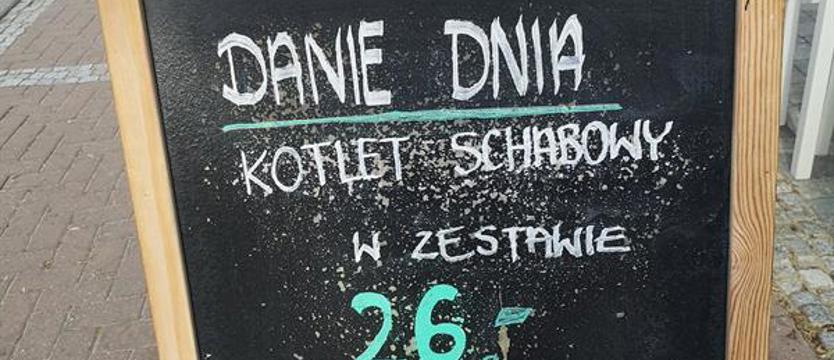 DANIE DNIA
KOTLET SCHABOWY
W ZESTAWIE
26,-